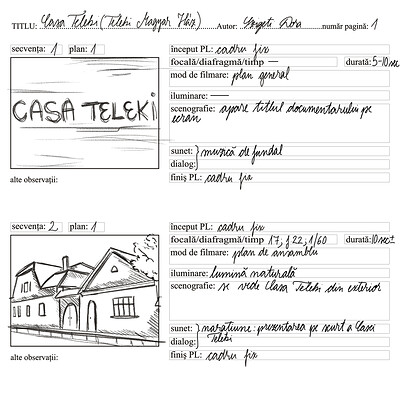 TITLU: Casa Teleki (Teleki Magyar Ház) Autor: Szigeti Dóra număr pagină: 1
secvența: 1 plan: 1
început PL: cadru fix
focală/diafragmă/timp — durată: 5-10sec
mod de filmare: plan general
iluminare: —
CASA TELEKI
scenografie: apare titlul documentarului pe
ecran
sunet: muzică de fundal
dialog:
alte observații:
finiș PL: cadru fix
secvența: 2 plan: 1
început PL: cadru fix
focală/diafragmă/timp 17, f 22, 1/60 durată: 10sec±
mod de filmare: plan de ansamblu
iluminare: lumină naturală
scenografie: se vede Casa Teleki din exterior
sunet: narațiune: prezentarea pe scurt a Casei
dialog: Teleki
alte observații:
finiș PL: cadru fix